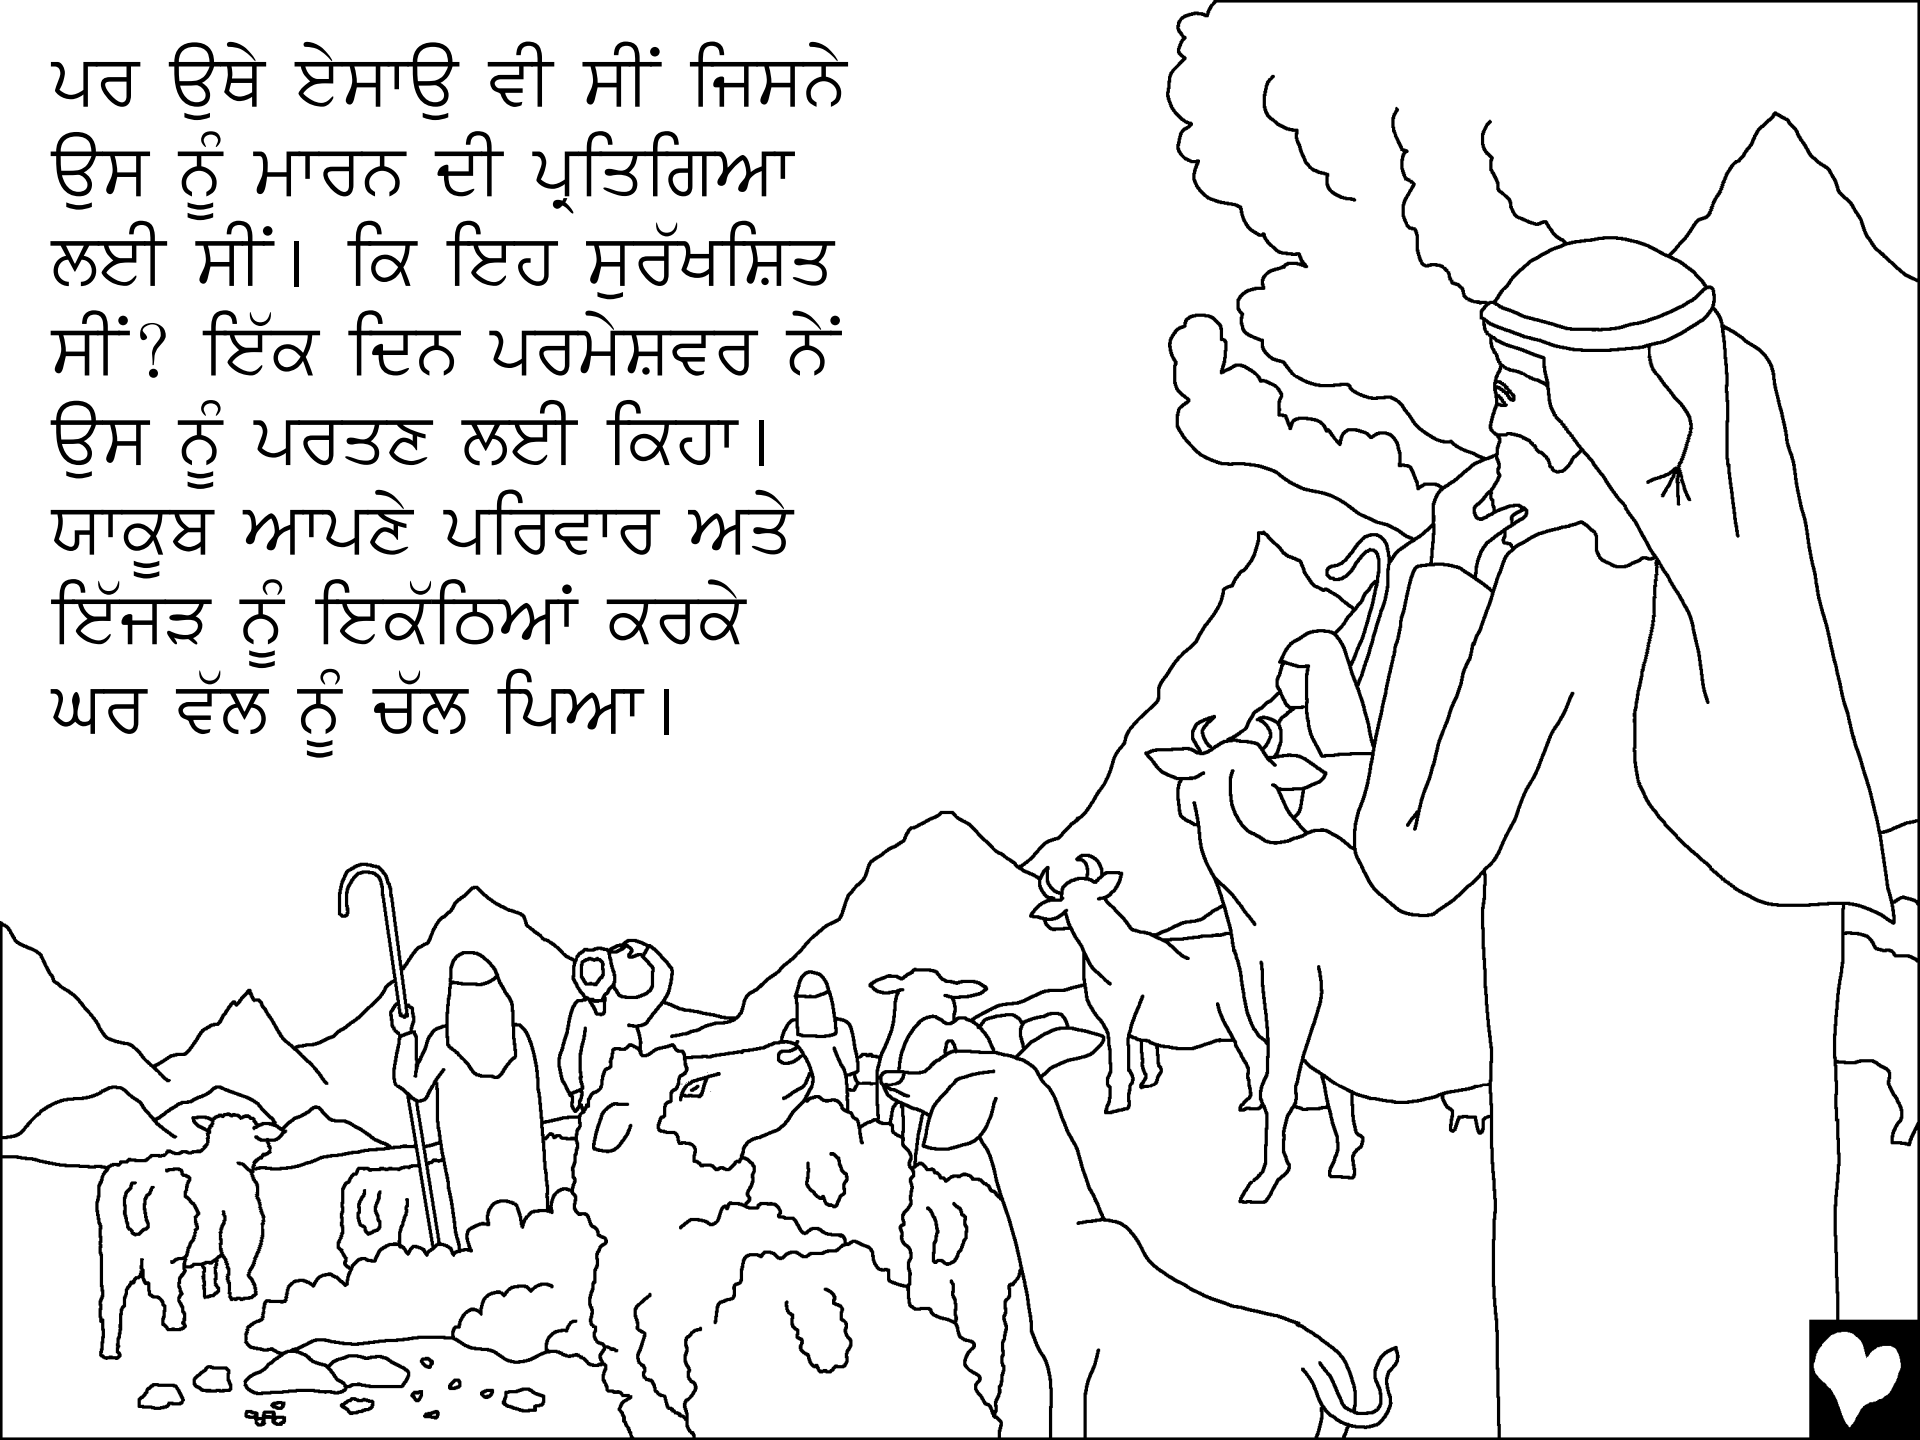 ਪਰ ਉਥੇ ਏਸਾਉ ਵੀ ਸੀਂ ਜਿਸਨੇ
ਉਸ ਨੂੰ ਮਾਰਨ ਦੀ ਪ੍ਰਤਿਗਿਆ
ਲਈ ਸੀਂ। ਕਿ ਇਹ ਸੁਰੱਖਸ਼ਿਤ
ਸੀਂ? ਇੱਕ ਦਿਨ ਪਰਮੇਸ਼ਵਰ ਨੇਂ
ਉਸ ਨੂੰ ਪਰਤਣ ਲਈ ਕਿਹਾ।
ਯਾਕੂਬ ਆਪਣੇ ਪਰਿਵਾਰ ਅਤੇ
ਇੱਜੜ ਨੂੰ ਇਕੱਠਿਆਂ ਕਰਕੇ
ਘਰ ਵੱਲ ਨੂੰ ਚੱਲ ਪਿਆ।